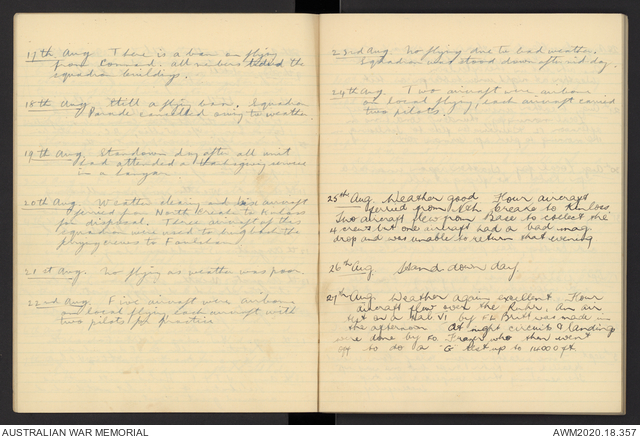 17th Aug. There is a ban on flying
from Command. All members tidied the
squadron buildings.
18th Aug. Still a flying ban. Squadron
Parade cancelled owing to weather.
19th Aug. Stand down day after all unit
had attended a thanksgiving service
in a hangar.
20th Aug. Weather clearing and six aircraft
ferried from North Creake to Kinloss
for disposal. Three aircraft of the
squadron were used to bring back the
ferrying crews to Foulsham.
21st Aug. No flying as weather was poor.
22nd Aug. Five aircraft were airborne
on local flying each aircraft with
two pilots for practice
23rd Aug. No flying due to bad weather.
Squadron was stood down after mid day.
24th Aug. Two aircraft were airborne
on local flying, each aircraft carried
two pilots.
25th Aug Weather good Four aircraft
ferried from Nth Creake to Kinloss.
Two aircraft flew from Base to collect the
4 crews but one aircraft had a bad mag
drop and was unable to return that evening
26th Aug Stand down day
27th Aug. Weather again excellent Four
aircraft flew over the Ruhr, an air
test on a by Britt was made in
the afternoon At night circuits & landings
were done by Fo. Frazer who then went
off to do a G test up to 14000 ft.
AUSTRALIAN WAR MEMORIAL
AWM2020.18.357